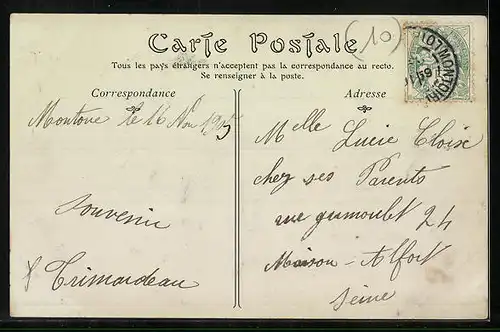 (10)
Carte Postale
Tous les pays étrangers n'acceptent pas la correspondance au recto.
Se renseigner à la poste.
Correspondance
Adresse
Montoire le 16 Nov 1905
Souvenir
Trimardeau
Melle Lucie Cloise
chez ses Parents
rue 24
Maison-Alfort
Seine